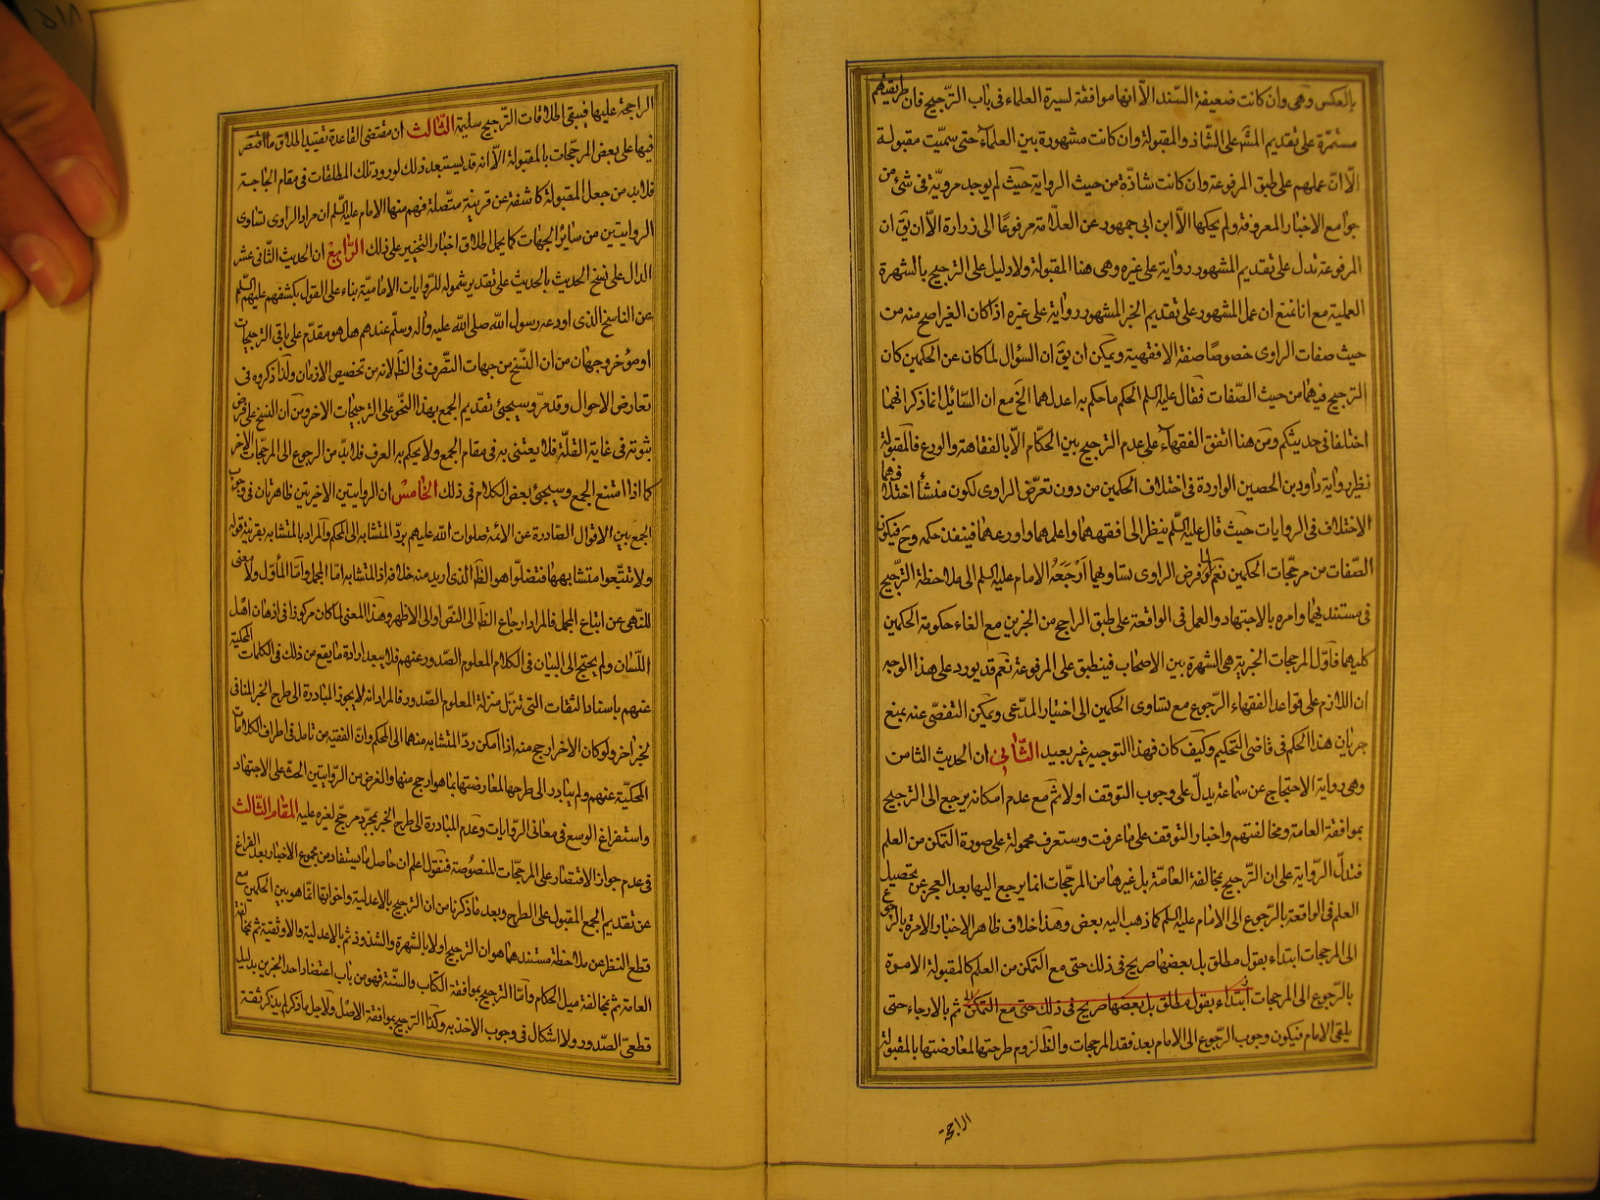 بالعكس وهى وان كانت ضعيفة السّند الاّ انها موافقة لسيرة العلماء فى باب الترّجيح فان طريقتهم
مستمرّة على تقديم المشهور على الشّاذ والمقبولة وان كانت مشهورة بين العلماء حتى سمّيت مقبولة
الاّ انّ عملهم على طبق المرفوعة وان كانت شاذّة من حيث الرواية حيث لم يوجد مرويّة فى شئ من
جوامع الاخبار المعروفة ولم يحكها الاّ ابن ابى جمهور عن العلاّمة مرفوعًا الى زرارة الاّ ان يق ان
المرفوعة تدل على تقديم المشهور رواية على غيره وهى هنا المقبولة ولا دليل على الترجيح بالشهرة
العملية مع انا نمنع ان عمل المشهور على تقديم الخبر المشهور رواية على غيره اذا كان الغير اصح منه من
حيث صفات الراوى خصوصًا صفة الافقهية ويمكن ان يق ان السؤال لما كان عن الحكمين كان
الترجيح فيهما من حيث الصّفات فقال عليه السلم الحكم ما حكم به اعدلهما الخ مع ان السّائل انما ذكر انهما
اختلفا فى حديثكم ومن هنا اتفق الفقهاء على عدم الترجيح بين الحكّام الاّ بالفقاهة والورع فالمقبولة
نظير رواية داود بن الحصين الواردة فى اختلاف الحكمين من دون تعرّض الراوى لكون منشأ اختلافهما
الاختلاف فى الروايات حيث قال عليه السّلم ينظر الى افقههما واعلمهما واورعهما فينفذ حكمه وح فيكون
الصّفات من مرجّحات الحكمين نعم لمّا فرض الراوى تساويهما ارجعه الامام عليه السلم الى ملاحظة الترّجيح
فى مستنديهما وامره بالاجتهاد والعمل فى الواقعة على طبق الراجح من الخبرين مع الغاء حكومة الحكمين
كليهما فاوّل المرجحات الخبريّة هى الشهرة بين الاصحاب فينطبق على المرفوعة نعم قد يورد على هذا الوجه
ان اللازم على قواعد الفقهاء الرّجوع مع تساوى الحكمين الى اختيار المدّعى ويمكن التفصّى عنه بمنع
جريان هذا الحكم فى قاضى التحكيم وكيف كان فهذا التوجيه غير بعيد الثّانى ان الحديث الثامن
وهى رواية الاحتجاج عن سماعة يدلّ على وجوب التوقف اولا ثم مع عدم امكانه يرجع الى الترجيح
بموافقة العامة ومخالفتهم واخبار التوقف على ما عرفت وستعرف محمولة على صورة التمكن من العلم
فتدلّ الرّواية على ان الترّجيح بمخالفة العامّة بل غيرها من المرجّحات انما يرجع اليها بعد العجز عن تحصيل
العلم فى الواقعة بالرّجوع الى الامام عليه السلم كما ذهب اليه بعض وهذا خلاف ظاهر الاخبار الامرة بالرّجوع
الى المرجحات ابتداء بقول مطلق بل بعضها صريح فى ذلك حتى مع التمكن من العلم كالمقبولة الامرة
بالرّجوع الى المرجحات ابتداء بقول مطلق بل بعضها صريح فى ذلك حتى مع التمكن ثم بالارجاء حتى
يلقى الامام فيكون وجوب الرّجوع الى الامام بعد فقد المرجحات والظ لزوم طرحتها لمعارضتها بالمقبولة
الراجحة
الراجحة عليها فيبقى اطلاقات الترّجيح سليمة الثّالث ان مقتضى القاعدة تقييد اطلاق ما اقتصر
فيها على بعض المرجّحات بالمقبولة الاّ انه قد يستبعد ذلك لورود تلك المطلقات فى مقام الحاجة
فلابد من جعل المقبولة كاشفة عن قرينة متّصلة فهم منها الامام عليه السّلم ان مراد الراوى تساوى
الروايتين من سائر الجهات كما يحمل اطلاق اخبار التخيير على ذلك الرّابع ان الحديث الثّانى عشر
الدال على نسخ الحديث بالحديث على تقدير شموله للرّوايات الاماميّة بناء على القول بكشفهم عليهم السّلم
عن الناسخ الذى اودعه رسول الله صلى الله عليه واله وسلّم عندهم هل هو مقدّم على باقى الترجيحات
او مؤخر وجهان من ان النّسخ من جهات التصّرف فى الظ لانه من تخصيص الازمان ولذا ذكروه فى
تعارض الاحوال وقد مرّ وسيجئ تقديم الجمع بهذا النّحو على الترجيحات الاخر ومن ان النسخ على فرض
ثبوته فى غاية القلّة فلا يعتنى به فى مقام الجمع ولا يحكم به العرف فلابدّ من الرجوع الى المرجّحات الاخر
كما اذا امتنع الجمع وسيجئ بعض الكلام فى ذلك الخامس ان الروايتين الاخيرتين ظاهرتان فى وجوب
الجمع بين الاقوال الصّادرة عن الائمة صلوات الله عليهم بردّ المتشابه الى المحكم والمراد بالمتشابه بقرينة قوله
ولا تتّبعوا متشابهها فتضلّوا هو الظ الذى اريد منه خلافه اذ المتشابه امّا المجمل وامّا المأوّل ولا معنى
للنّهى عن اتباع المجمل فالمراد ارجاع الظ الى النّص او الى الاظهر وهذا المعنى لما كان مركوزا فى اذهان اهل
اللّسان ولم يحتج الى البيان فى الكلام المعلوم الصّدور عنهم فلا يبعد ارادة ما يقع من ذلك فى الكلمات المحكية
عنهم باسناد الثقات التى تنزّل منزلة المعلوم الصّدور فالمراد انه لا يجوز المبادرة الى طرح الخبر المنافى
لخبر اخر ولو كان الاخر ارجح منه اذا امكن ردّ المتشابه منهما الى المحكم وانّ الفقيه من تامل فى اطراف الكلامات
المحكيّة عنهم ولم يبادر الى طرحها لمعارضتها بما هو ارجح منها والغرض من الرّوايتين الحثّ على الاجتهاد
واستفراغ الوسع فى معانى الرّوايات وعدم المبادرة الى طرح الخبر بمجرّد مرجّح لغيره عليه المقام الثّالث
فى عدم جواز الاقتصار على المرجّحات المنصوصة فنقول اعلم ان حاصل ما يستفاد من مجموع الاخبار بعد الفراغ
عن تقديم الجمع المقبول على الطرح وبعد ما ذكرنا من ان الترجيح بالاعدلية واخواتها انّما هو بين الحكمين مع
قطع النظر عن ملاحظة مستندهما هو ان الترجيح اولا بالشهرة والشذوذ ثم بالاعدلية والاوثقية ثم بمخالفة
العامة ثم بمخالفة ميل الحكام وامّا الترجيح بموافقة الكتاب والسنّة فهو من باب اعتضاد احد الخبرين بدليل
قطعىّ الصّدور ولا اشكال فى وجوب الاخذ به وكذا الترجيح بموافقة الاصل ولاجل ما ذكر لم يذكر ثقة